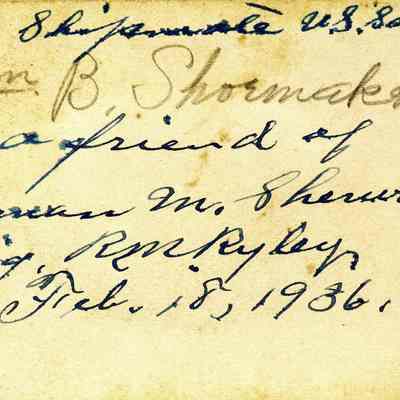 Shipmate U.S.
B. Shoemake
a friend of
man M.
RMRyley,
Feb. 18, 1936.